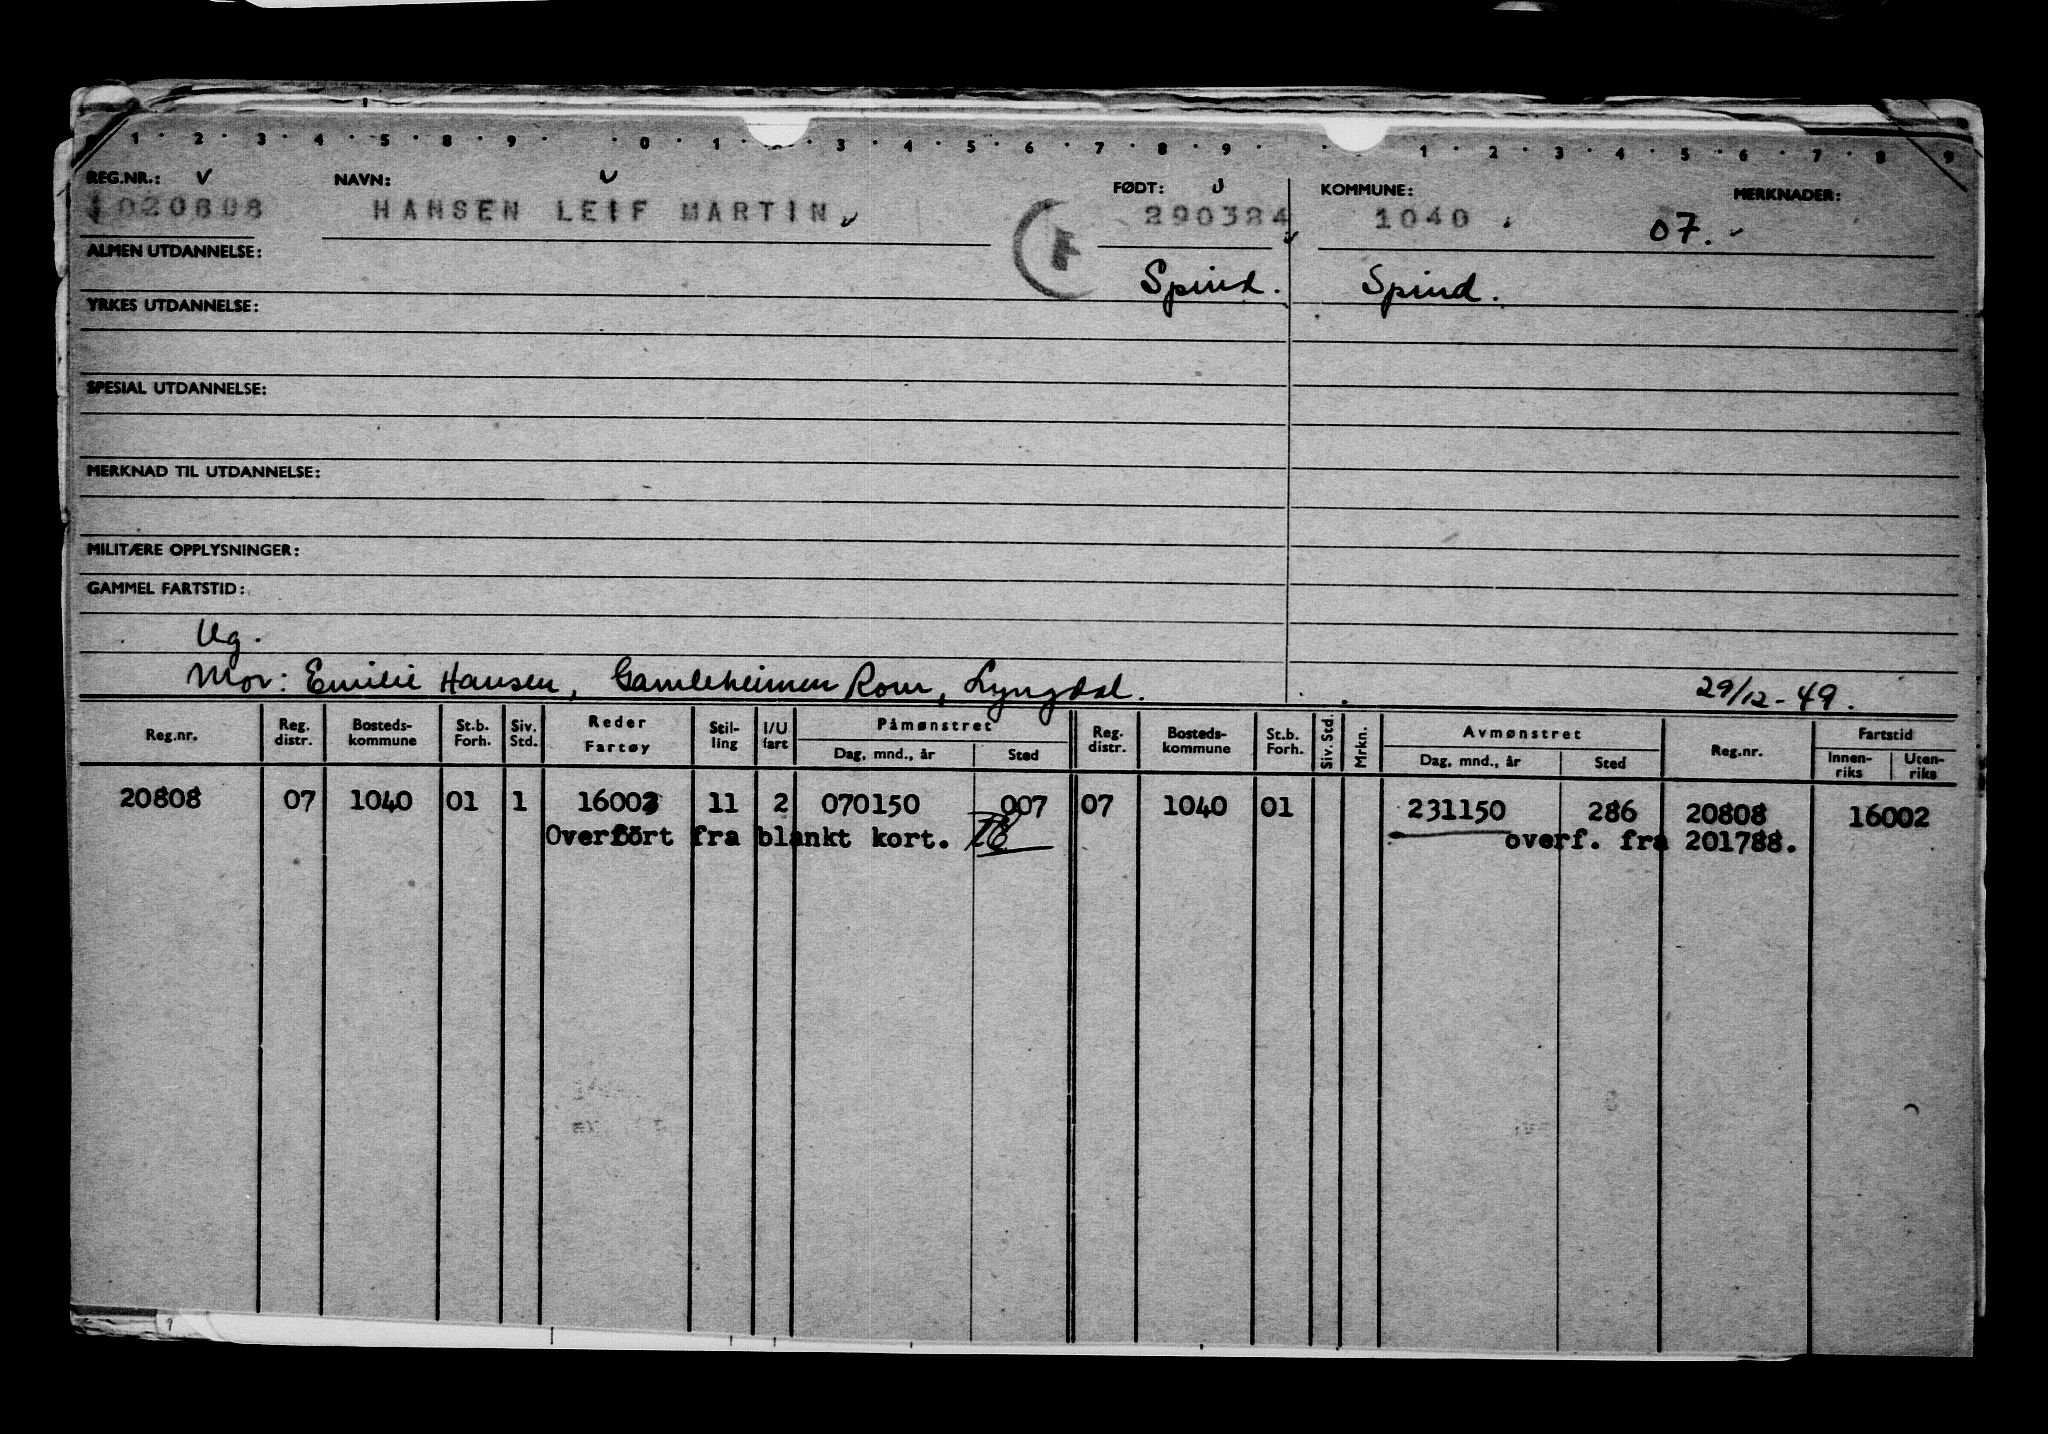 1 · 2 · 3 · 4 · 5 · 8 · 9 · · 0 · 1 · 2 · 3 · 4 · 5 · 6 · 7 · 8 · 9 · · · 1 · 2 · 3 · 4 · 5 · 6 · 7 · 8 · 9
REG.NR.: v NAVN: FØDT: KOMMUNE: MERKNADER:
020808 HANSEN LEIF MARTIN F 290324 1040 07.
ALMEN UTDANNELSE: Spind. Spind.
YRKES UTDANNELSE:
SPESIAL UTDANNELSE:
MERKNAD TIL UTDANNELSE:
MILITÆRE OPPLYSNINGER:
GAMMEL FARTSTID:
Ug.
Mor: Emilie Hansen, Gamleheimen Rom, Lyngdal. 29/12-49.
Reg.nr. Reg. distr. Bosteds-kommune St.b. Forh. Siv. Std. Reder Fartøy Stil-ling I/U fart Påmønstret Dag, mnd., år Sted Reg. distr. Bosteds-kommune St.b. Forh. Siv. Std. Mrkn. Avmønstret Dag, mnd., år Sted Reg.nr. Fartstid Innen-riks Uten-riks
20808 07 1040 01 1 16002 11 2 070150 007 07 1040 01 231150 286 20808 16002
Overfört fra blankt kort. overf. fra 201788.